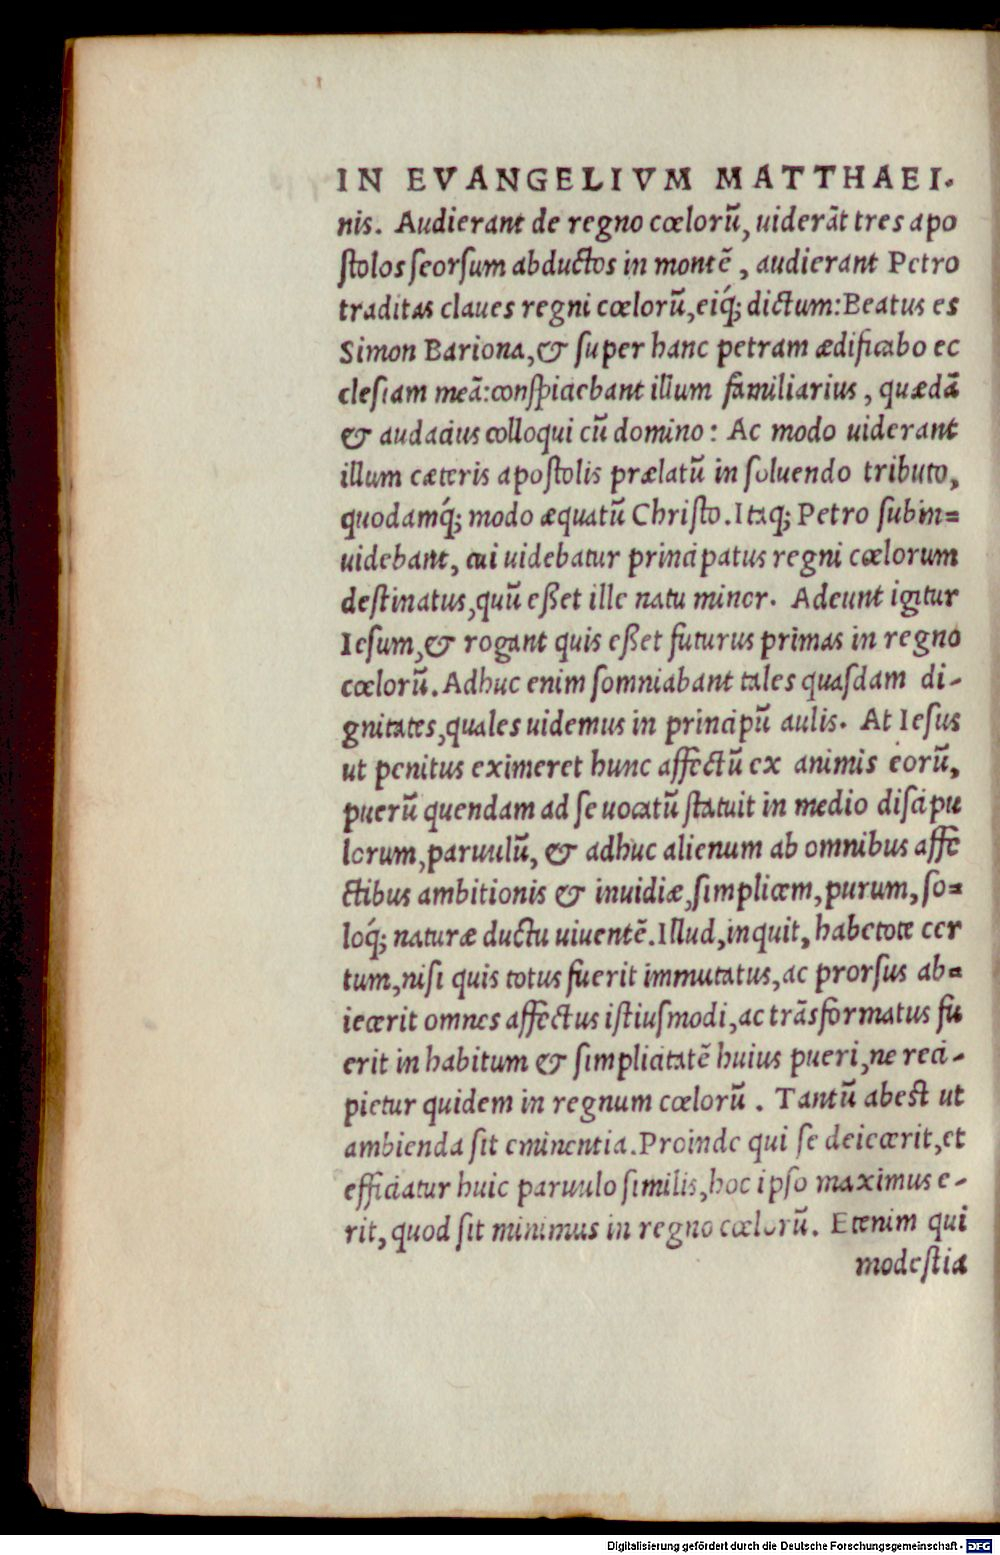 IN EVANGELIVM MATTHAEI.
nis. Audierant de regno cœlorũ, uiderãt tres apo
ſtolos ſeorſum abductos in montẽ, audierant Petro
traditas claues regni cœlorũ, eiq́; dictum: Beatus es
Simon Bariona, & ſuper hanc petram ædificabo ec
cleſiam meã: conſpiciebant illum familiarius, quædã
& audacius colloqui cũ domino: Ac modo uiderant
illum cæteris apoſtolis prælatũ in ſoluendo tributo,
quodamq́; modo æquatũ Chriſto. Itaq; Petro ſubin=
uidebant, cui uidebatur principatus regni cœlorum
deſtinatus, quũ eßet ille natu minor. Adeunt igitur
Ieſum, & rogant quis eßet futurus primas in regno
cœlorũ. Adhuc enim ſomniabant tales quaſdam di-
gnitates, quales uidemus in principũ aulis. At Ieſus
ut penitus eximeret hunc affectũ ex animis eorũ,
puerũ quendam ad ſe uocatũ ſtatuit in medio diſcipu
lorum, paruulũ, & adhuc alienum ab omnibus affe
ctibus ambitionis & inuidiæ, ſimplicem, purum, ſo=
loq́; naturæ ductu uiuentẽ. Illud, inquit, habetote cer
tum, niſi quis totus fuerit immutatus, ac prorſus ab=
iecerit omnes affectus iſtiuſmodi, ac trãsformatus fu
erit in habitum & ſimplicitatẽ huius pueri, ne reci-
pietur quidem in regnum cœlorũ. Tantũ abeſt ut
ambienda ſit eminentia. Proinde qui ſe deiecerit, et
efficiatur huic paruulo ſimilis, hoc ipſo maximus e-
rit, quod ſit minimus in regno cœlorũ. Etenim qui
modeſtia
Digitalisierung gefördert durch die Deutsche Forschungsgemeinschaft - DFG